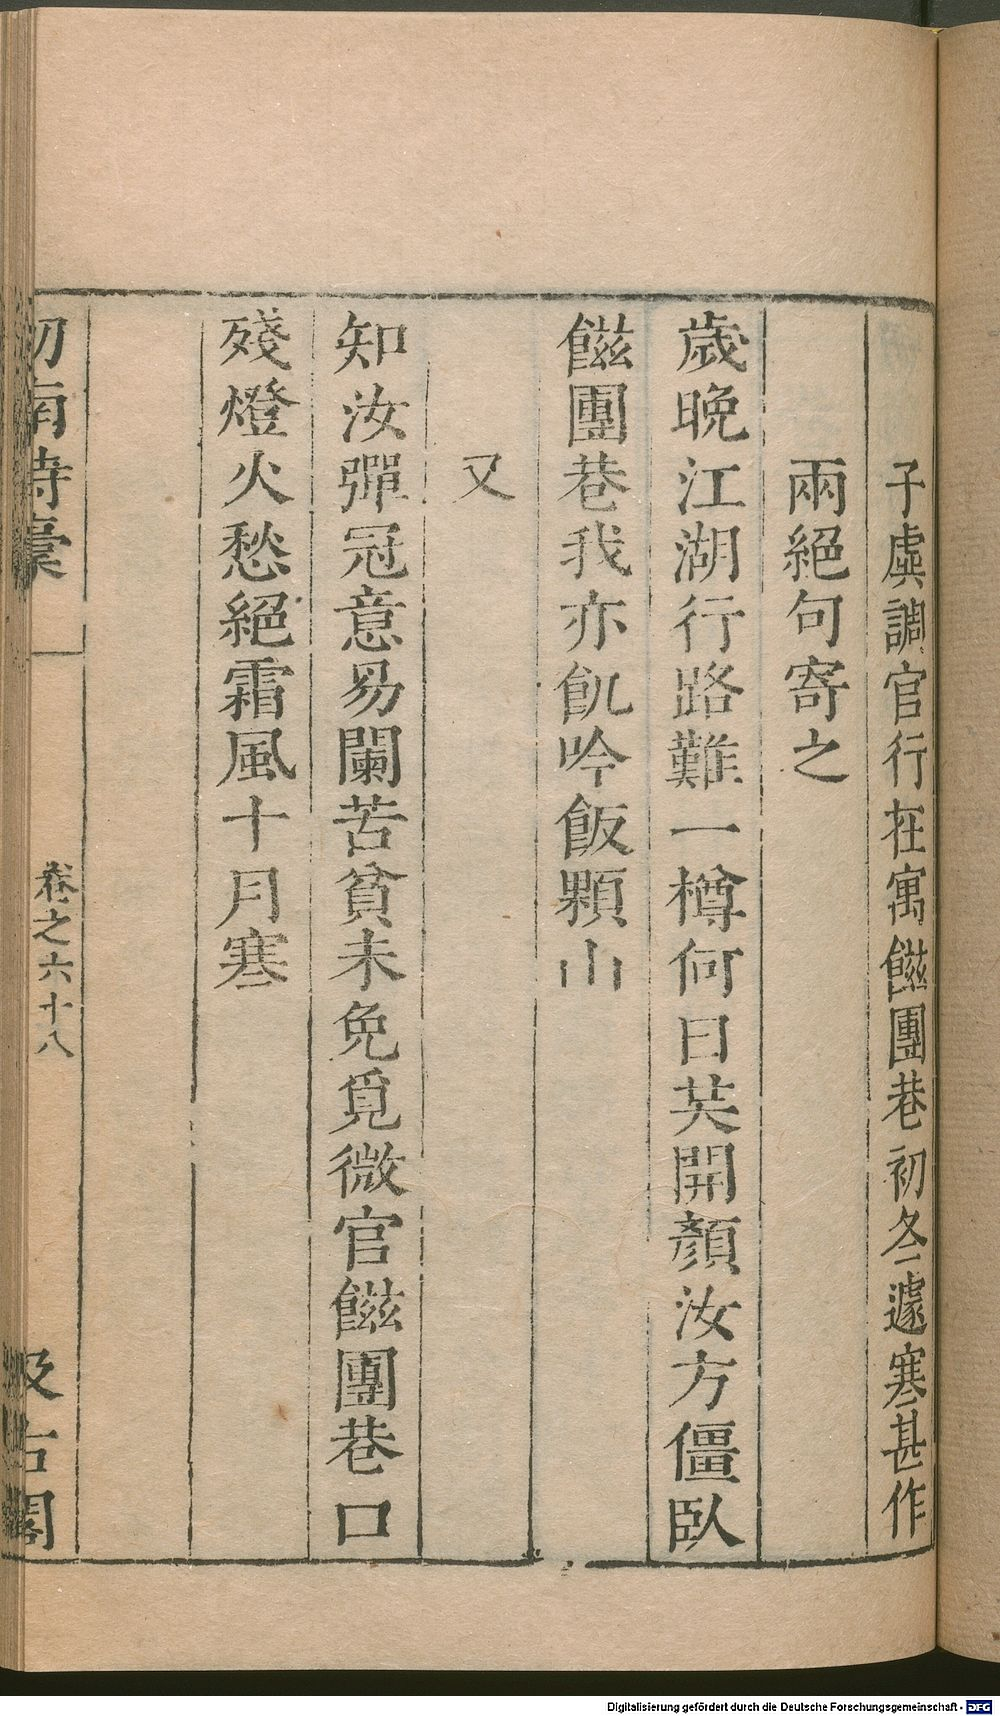 子虡調官行在寓餻團巷初冬遽寒甚作
兩絕句寄之
歲晚江湖行路難一樽何日笑開顏汝方僵臥
餻團巷我亦飢吟飯顆山
又
知汝彈冠意易闌苦貧未免覓微官餻團巷口
殘燈火愁絕霜風十月寒
劒南詩稾
卷之六十八
汲古閣
Digitalisierung gefördert durch die Deutsche Forschungsgemeinschaft - DFG